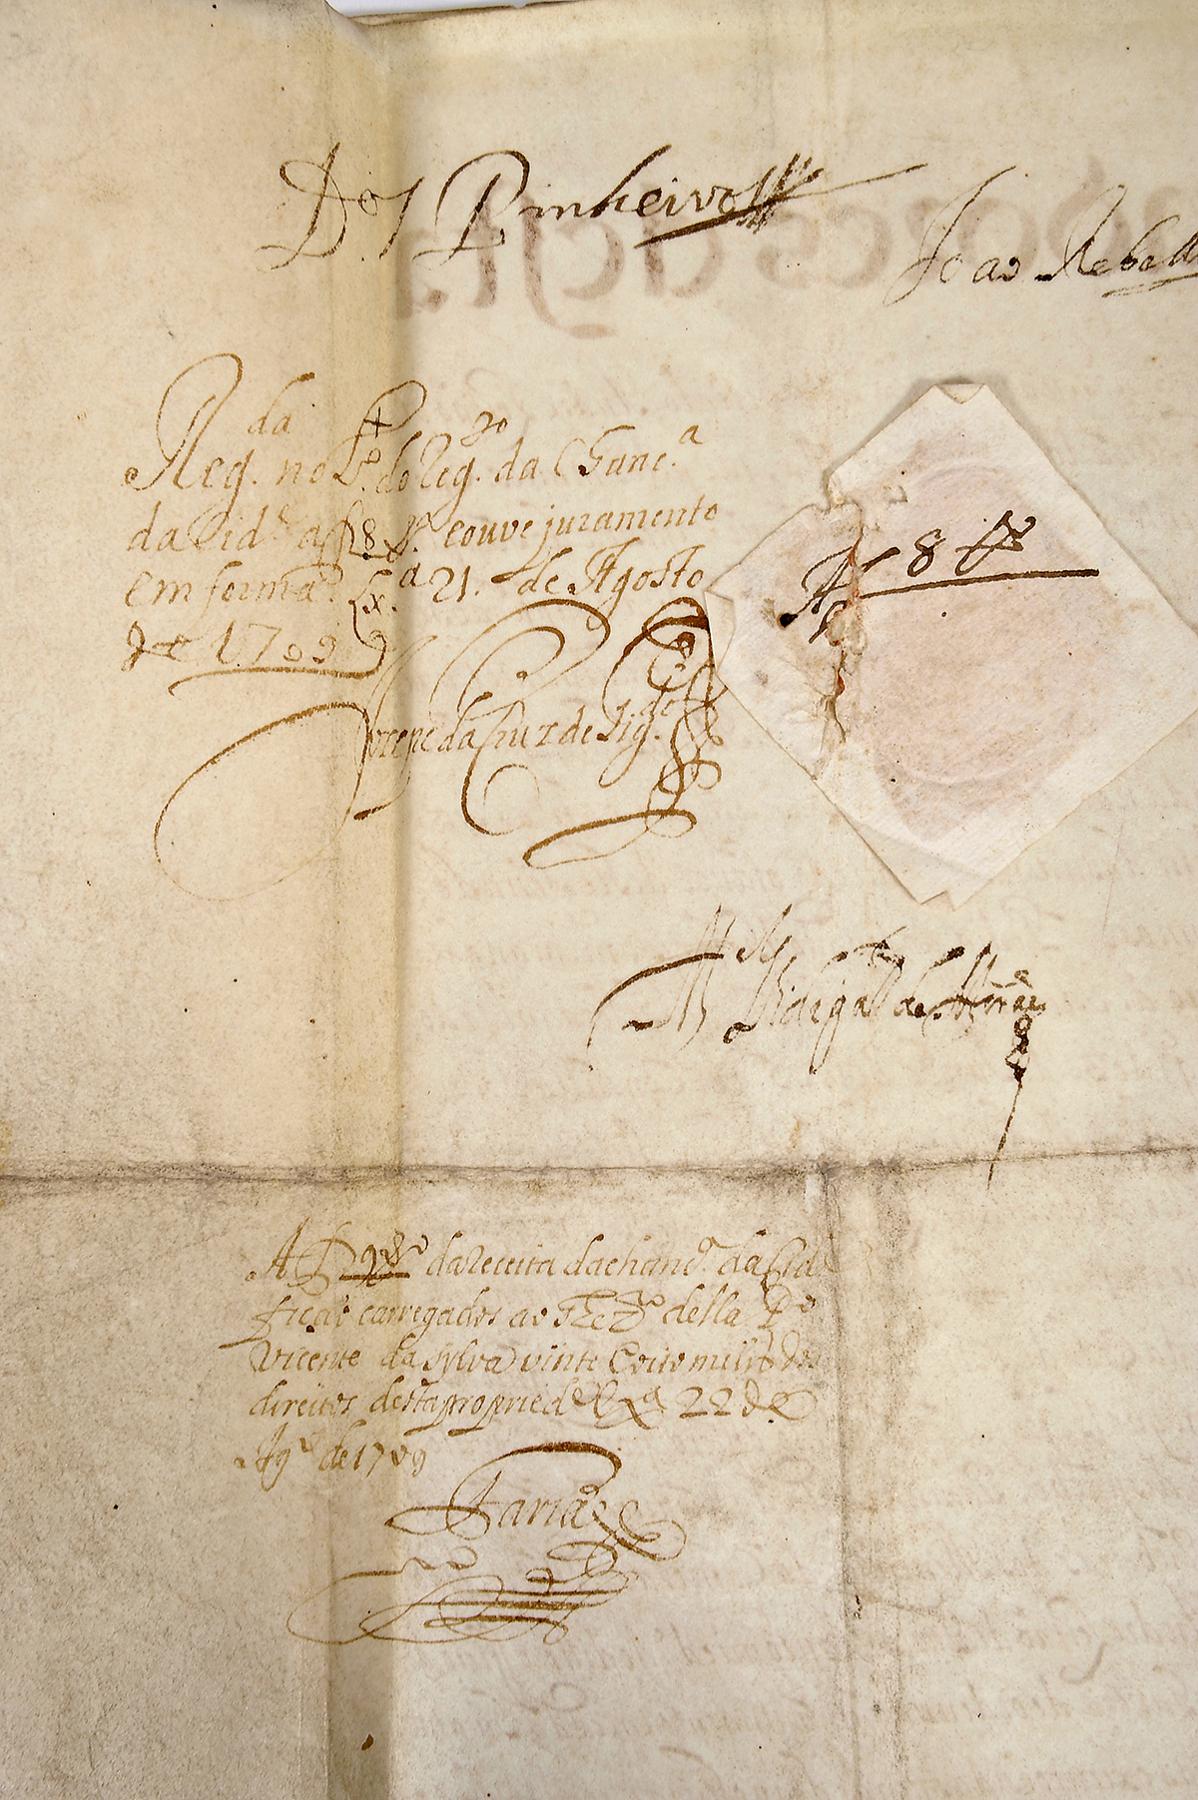 Dos Pinheiros
João Rebello
Reg.da no L.o do Reg.ro da Chanc.a
da Cid.e a f 28 V.o e ouve juramento
em forma L.x.a 21. de Agosto
de 1709
Jozeph da Cruz de Fig.do
N 8 V
M.el Vidigal de Moraes
A f 29 V da Receita da chanc.a da Cid.e
ficão carregados ao Thez.ro della P.o
Vicente da Sylva vinte e oito mil rs dos
direitos desta propried.e L.x.a 22 de
Ag.to de 1709
Faria